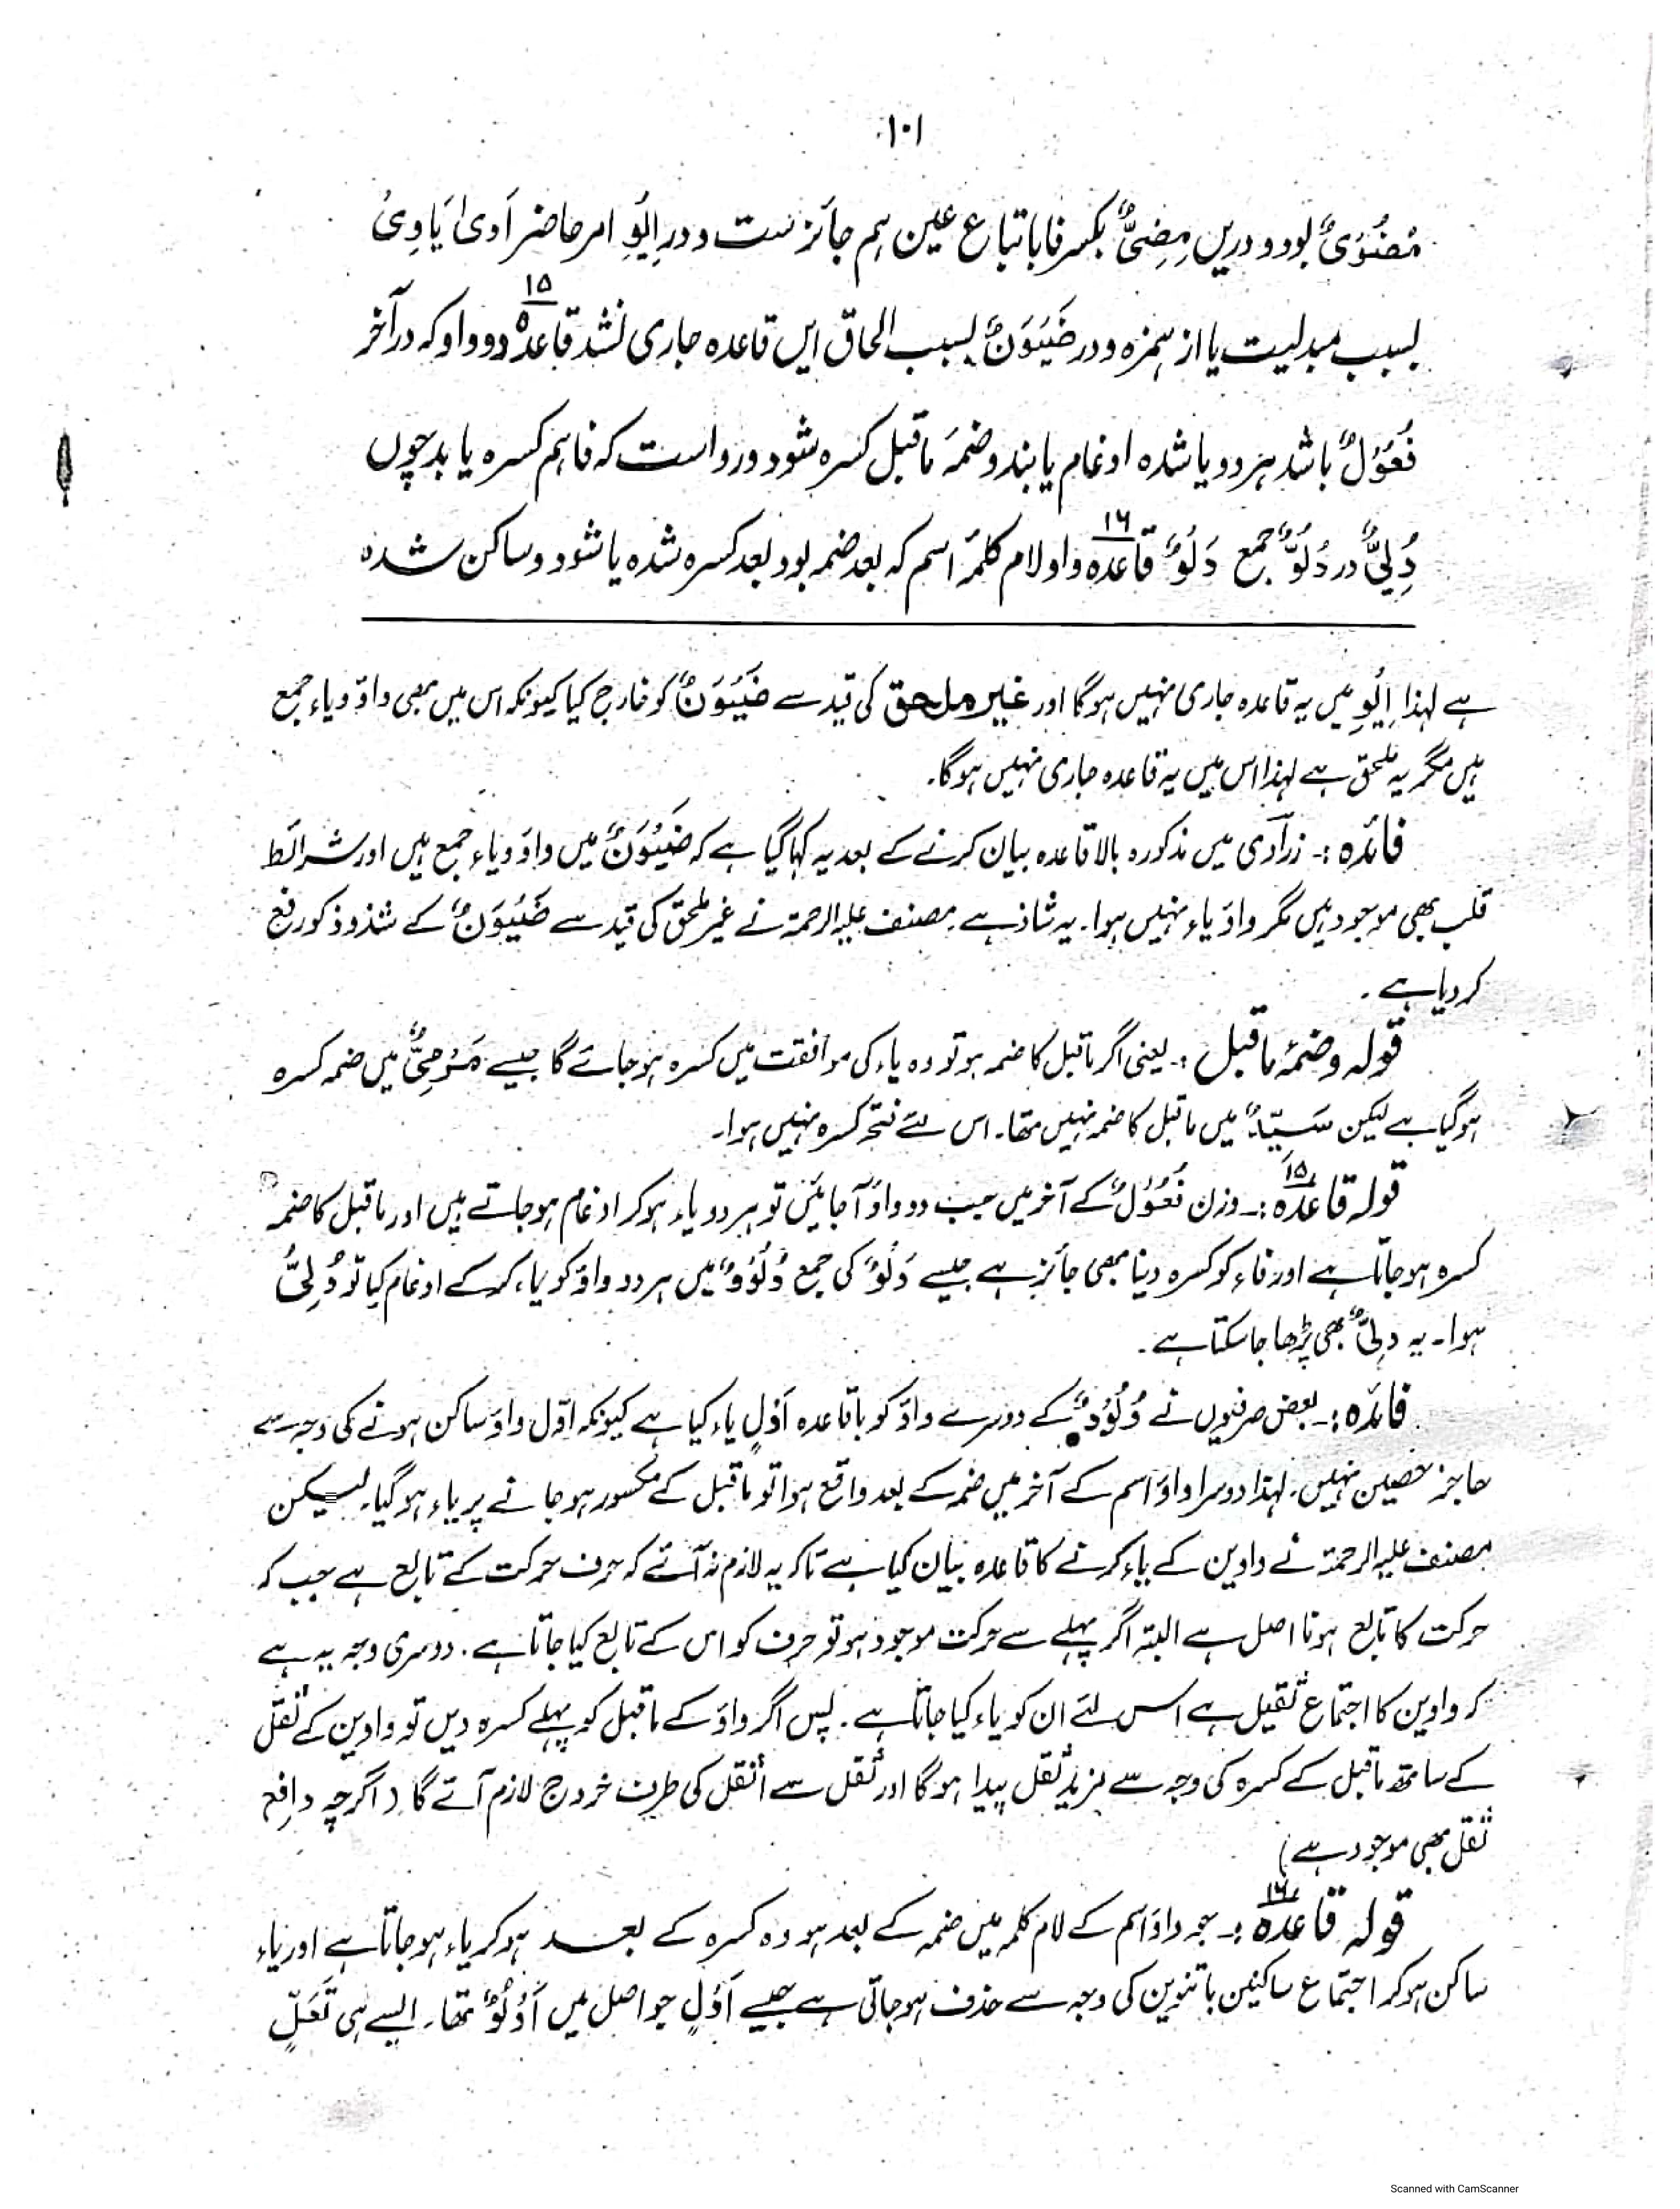 ۱۰۱
مُضُوْیٌ بود و درین مِضِیٌّ بکسر فا باتباع عین ہم جائز ست و در اِیْوِ امر حاضر اَوٰی یَاوِیْ
بسبب مبدلیت یا از ہمزہ و در ضَیْوَنٌ بسبب الحاق ایں قاعدہ جاری نشد قاعدہ ۱۵ دو واو کہ در آخر
فُعُوْلٌ باشد ہر دو یا شدہ ادغام یابند و ضمۂ ماقبل کسرہ شود و رواست کہ فا ہم کسرہ یابد چوں
دُلِیٌّ در دُلُوٌّ جمع دَلْوٌ قاعدہ ۱۶ واو لام کلمۂ اسم کہ بعد ضمہ بود بعد کسرہ شدہ یا شود و ساکن شدہ
ہے لہٰذا اِیْوِ میں یہ قاعدہ جاری نہیں ہوگا اور غیر ملحق کی قید سے ضَیْوَنٌ کو خارج کیا کیونکہ اس میں بھی واؤ و یاء جمع
ہیں مگر یہ ملحق ہے لہذا اس میں یہ قاعدہ جاری نہیں ہوگا۔
فائدہ :۔ زرآدی میں مذکورہ بالا قاعدہ بیان کرنے کے بعد یہ کہا گیا ہے کہ ضَیْوَنٌ میں واؤ و یاء جمع ہیں اور شرائط
قلب بھی موجود ہیں مگر واؤ یاء نہیں ہوا۔ یہ شاذ ہے۔ مصنف علیہ الرحمۃ نے غیر ملحق کی قید سے ضَیْوَنٌ کے شذوذ کو رفع
کر دیا ہے ۔
قولہ و ضمۂ ماقبل :۔ یعنی اگر ماقبل کا ضمہ ہو تو وہ یاء کی موافقت میں کسرہ ہو جائے گا جیسے مَرْمِیٌّ میں ضمہ کسرہ
ہوگیا ہے لیکن سَیِّدٌ میں ماقبل کا ضمہ نہیں تھا۔ اس لئے فتحہ کسرہ نہیں ہوا۔
قولہ قاعدہ ۱۵ :۔ وزن فُعُوْلٌ کے آخر میں جب دو واؤ آجائیں تو ہر دو یاء ہو کر ادغام ہو جاتے ہیں اور ماقبل کا ضمہ
کسرہ ہو جاتا ہے اور فاء کو کسرہ دینا بھی جائز ہے جیسے دَلْوٌ کی جمع دُلُوْوٌ میں ہر دو واؤ کو یاء کر کے ادغام کیا تو دُلِیٌّ
ہوا۔ یہ دِلِیٌّ بھی پڑھا جا سکتا ہے ۔
فائدہ :۔ بعض صرفیوں نے دُلُوْوٌ کے دوسرے واؤ کو باقاعدہ اَدْلٍ یاء کیا ہے کیونکہ اوّل واؤ ساکن ہونے کی وجہ سے
حاجز حصین نہیں۔ لہذا دوسرا واؤ اسم کے آخر میں ضمہ کے بعد واقع ہوا تو ماقبل کے مکسور ہو جانے پر یاء ہوگیا۔ لیکن
مصنف علیہ الرحمۃ نے واوین کے یاء کرنے کا قاعدہ بیان کیا ہے تاکہ یہ لازم نہ آئے کہ حرف حرکت کے تابع ہے جب کہ
حرکت کا تابع ہونا اصل ہے البتہ اگر پہلے سے حرکت موجود ہو تو حرف کو اس کے تابع کیا جاتا ہے ۔ دوسری وجہ یہ ہے
کہ واوین کا اجتماع ثقیل ہے اس لئے ان کو یاء کیا جاتا ہے ۔ پس اگر واؤ کے ماقبل کو پہلے کسرہ دیں تو واوین کے ثقل
کے ساتھ ماقبل کے کسرہ کی وجہ سے مزید ثقل پیدا ہوگا اور ثقل سے اثقل کی طرف خروج لازم آئے گا ( اگرچہ دافع
ثقل بھی موجود ہے )
قولہ قاعدہ ۱۶ :۔ جو واؤ اسم کے لام کلمہ میں ضمہ کے بعد ہو وہ کسرہ کے بعد ہو کر یاء ہو جاتا ہے اور یاء
ساکن ہو کر اجتماع ساکنین با تنوین کی وجہ سے حذف ہو جاتی ہے جیسے اَدْلٍ جو اصل میں اَدْلُوٌ تھا۔ ایسے ہی تَعَلٍّ
Scanned with CamScanner